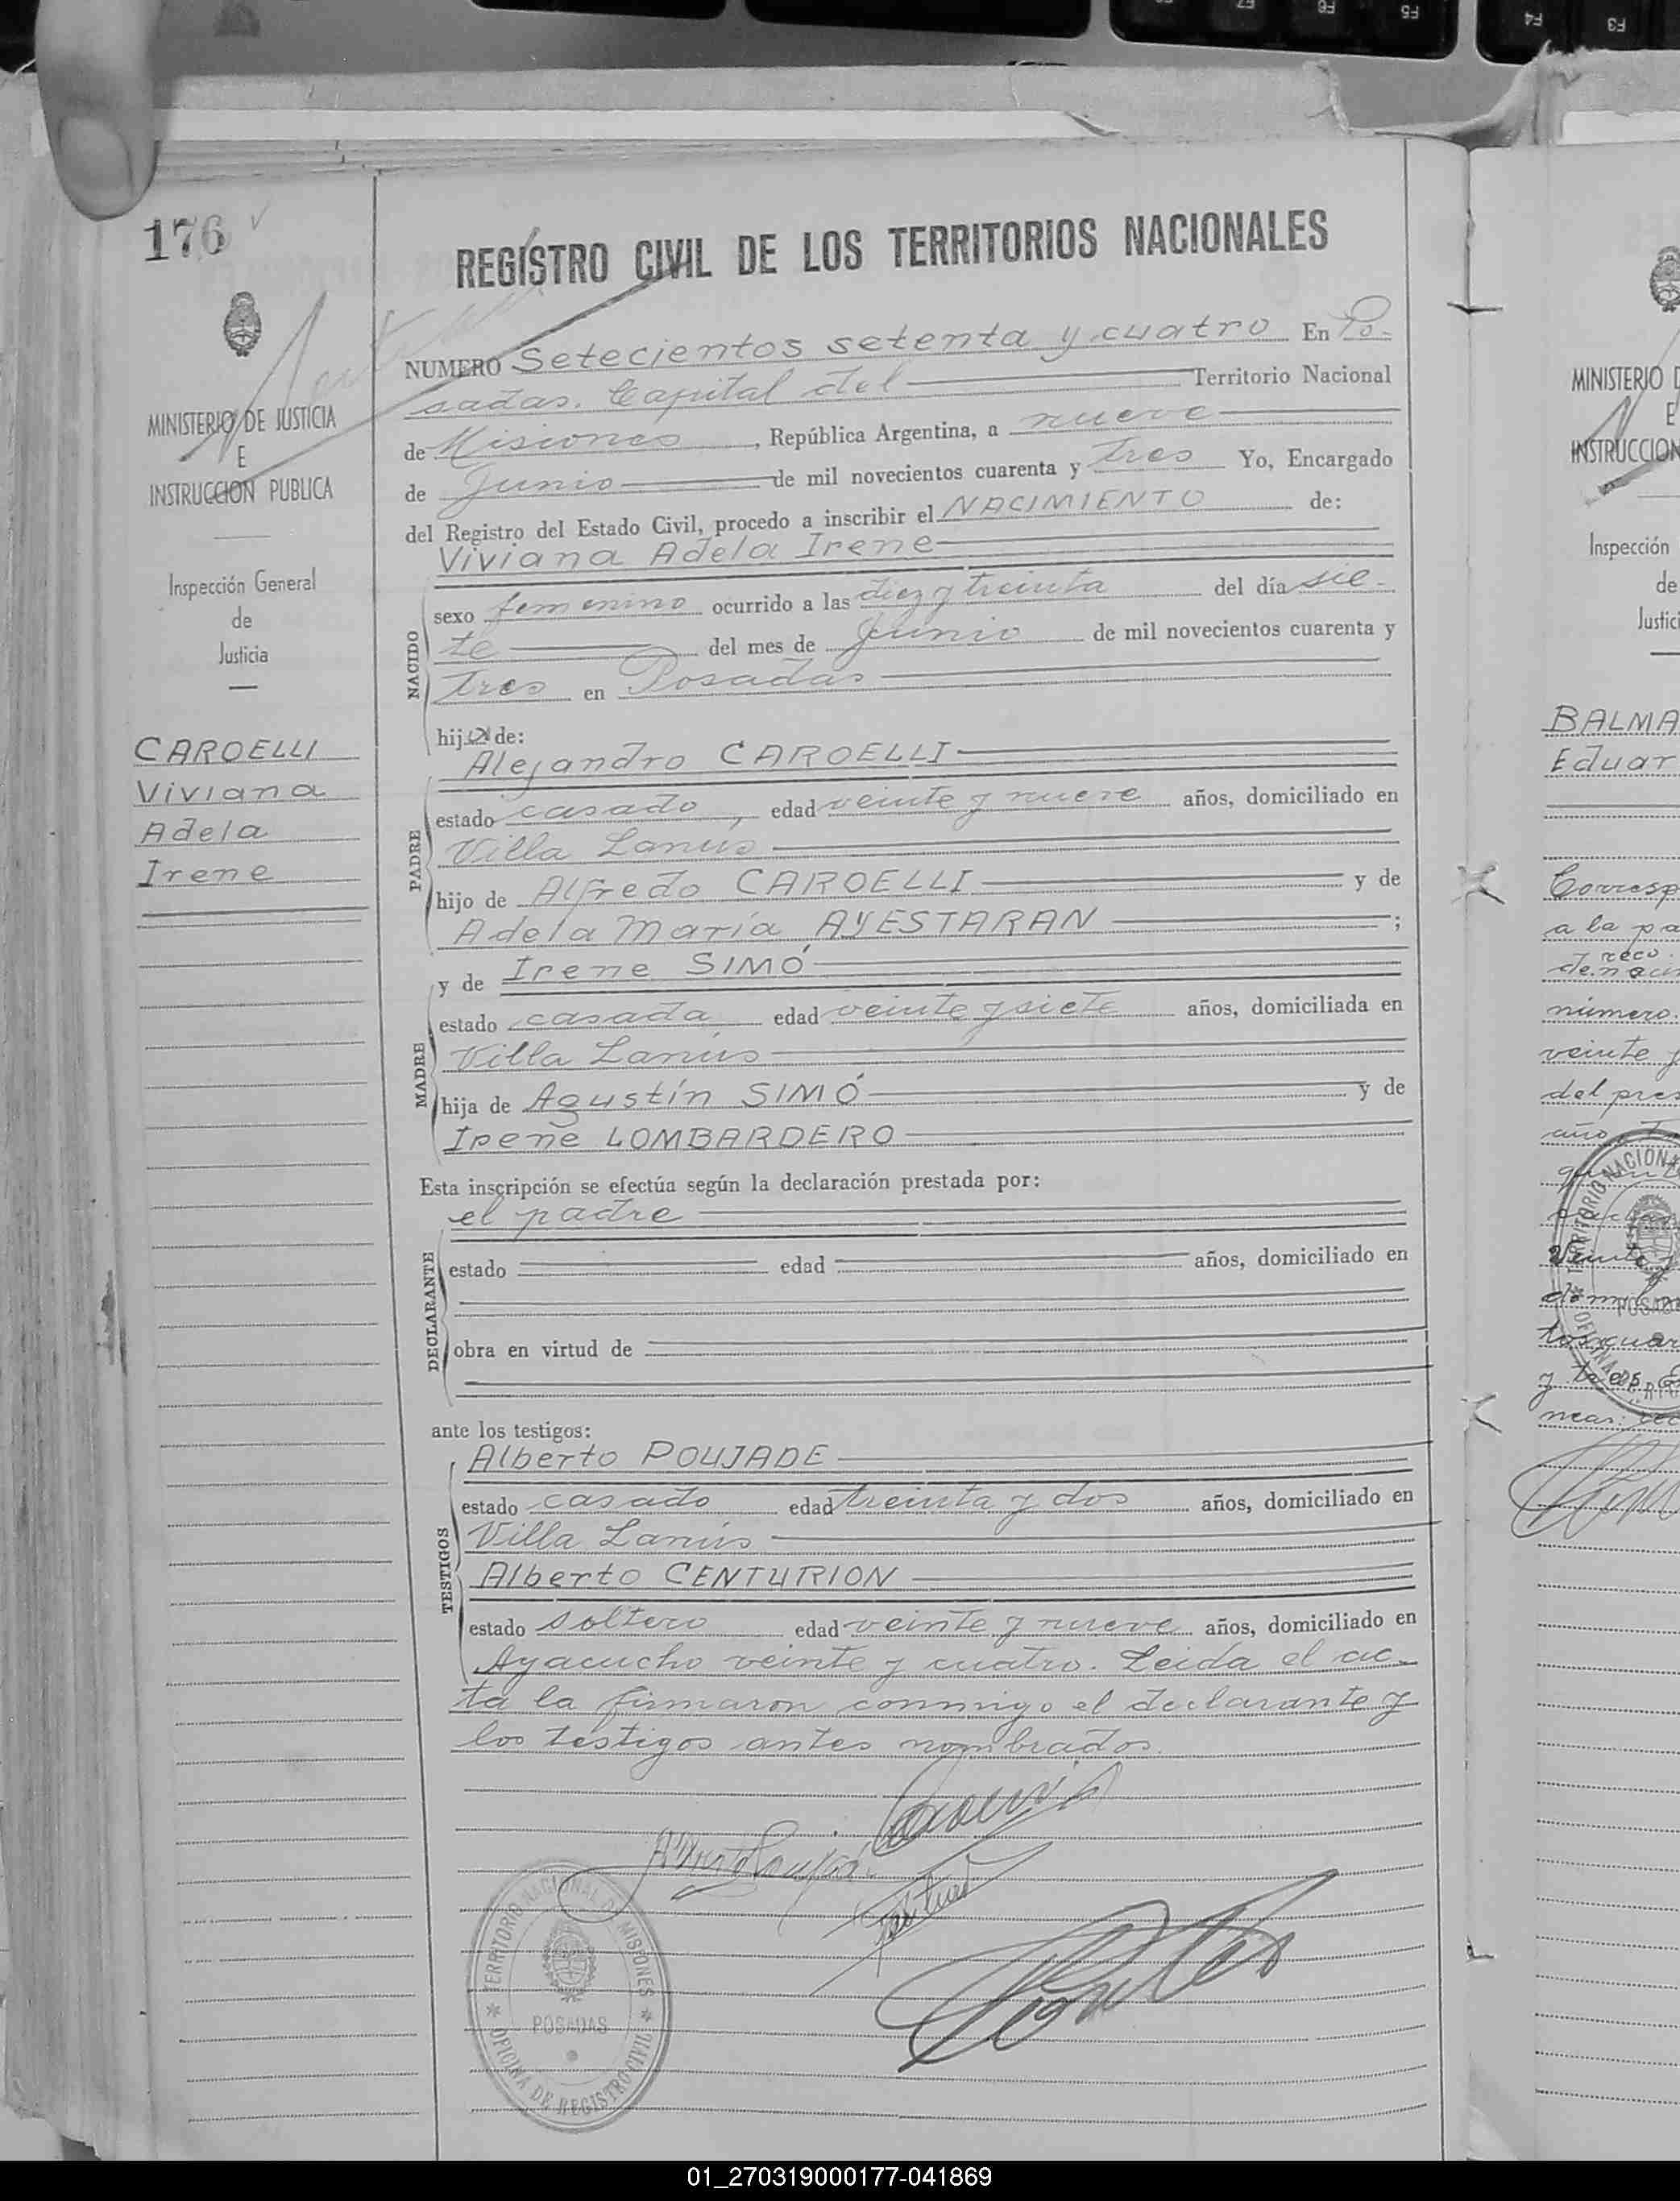 176
REGISTRO CIVIL DE LOS TERRITORIOS NACIONALES
MINISTERIO DE JUSTICIA
E
INSTRUCCION PUBLICA
Inspección General
de
Justicia
CAROELLI
Viviana
Adela
Irene
NUMERO Setecientos setenta y cuatro En Po-
sadas. Capital del Territorio Nacional
de Misiones, República Argentina, a nueve
de Junio de mil novecientos cuarenta y tres Yo, Encargado
del Registro del Estado Civil, procedo a inscribir el NACIMIENTO de:
Viviana Adela Irene
NACIDO
sexo femenino ocurrido a las diez y treinta del día sie-
te del mes de Junio de mil novecientos cuarenta y
tres en Posadas
hija de:
Alejandro CAROELLI
PADRE
estado casado, edad veinte y nueve años, domiciliado en
Villa Lanus
hijo de Alfredo CAROELLI y de
Adela María AYESTARAN ;
y de Irene SIMÓ
MADRE
estado casada edad veinte y siete años, domiciliada en
Villa Lanús
hija de Agustín SIMÓ y de
Irene LOMBARDERO
Esta inscripción se efectúa según la declaración prestada por:
el padre
DECLARANTE
estado edad años, domiciliado en
obra en virtud de
ante los testigos:
Alberto POUJADE
TESTIGOS
estado casado edad treinta y dos años, domiciliado en
Villa Lanús
Alberto CENTURION
estado soltero edad veinte y nueve años, domiciliado en
Ayacucho veinte y cuatro. Leida el ac-
ta la firmaron conmigo el declarante y
los testigos antes nombrados.
TERRITORIO NACIONAL DE MISIONES
POSADAS
OFICINA DE REGISTRO CIVIL
MINISTERIO D
E
INSTRUCCION
Inspección
de
Justici
BALMA
Eduar
Corresp
a la pa
reco
de naci
número
veinte y
del pres
año
POSADA
01_270319000177-041869